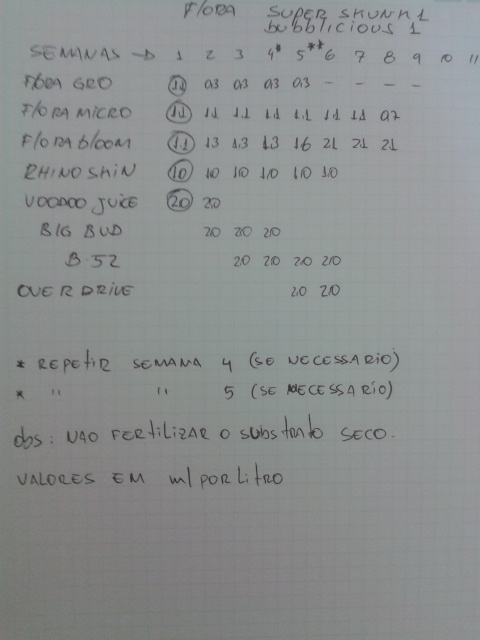 FLORA SUPER SKUNK 1
BUBBLICIOUS 1
SEMANAS → 1 2 3 4* 5** 6 7 8 9 10 11
FLORA GRO 1.1 0.3 0.3 0.3 0.3 - - - -
FLORA MICRO 1.1 1.1 1.1 1.1 1.1 1.1 1.1 0.7
FLORA BLOOM 1.1 1.3 1.3 1.3 1.6 2.1 2.1 2.1
RHINO SKIN 1.0 1.0 1.0 1.0 1.0 1.0
VOODOO JUICE 2.0 2.0
BIG BUD 2.0 2.0 2.0
B-52 2.0 2.0 2.0 2.0
OVERDRIVE 2.0 2.0
* REPETIR SEMANA 4 (SE NECESSARIO)
* " " 5 (SE NECESSARIO)
obs: NAO FERTILIZAR O SUBSTRATO SECO.
VALORES EM ml POR LITRO